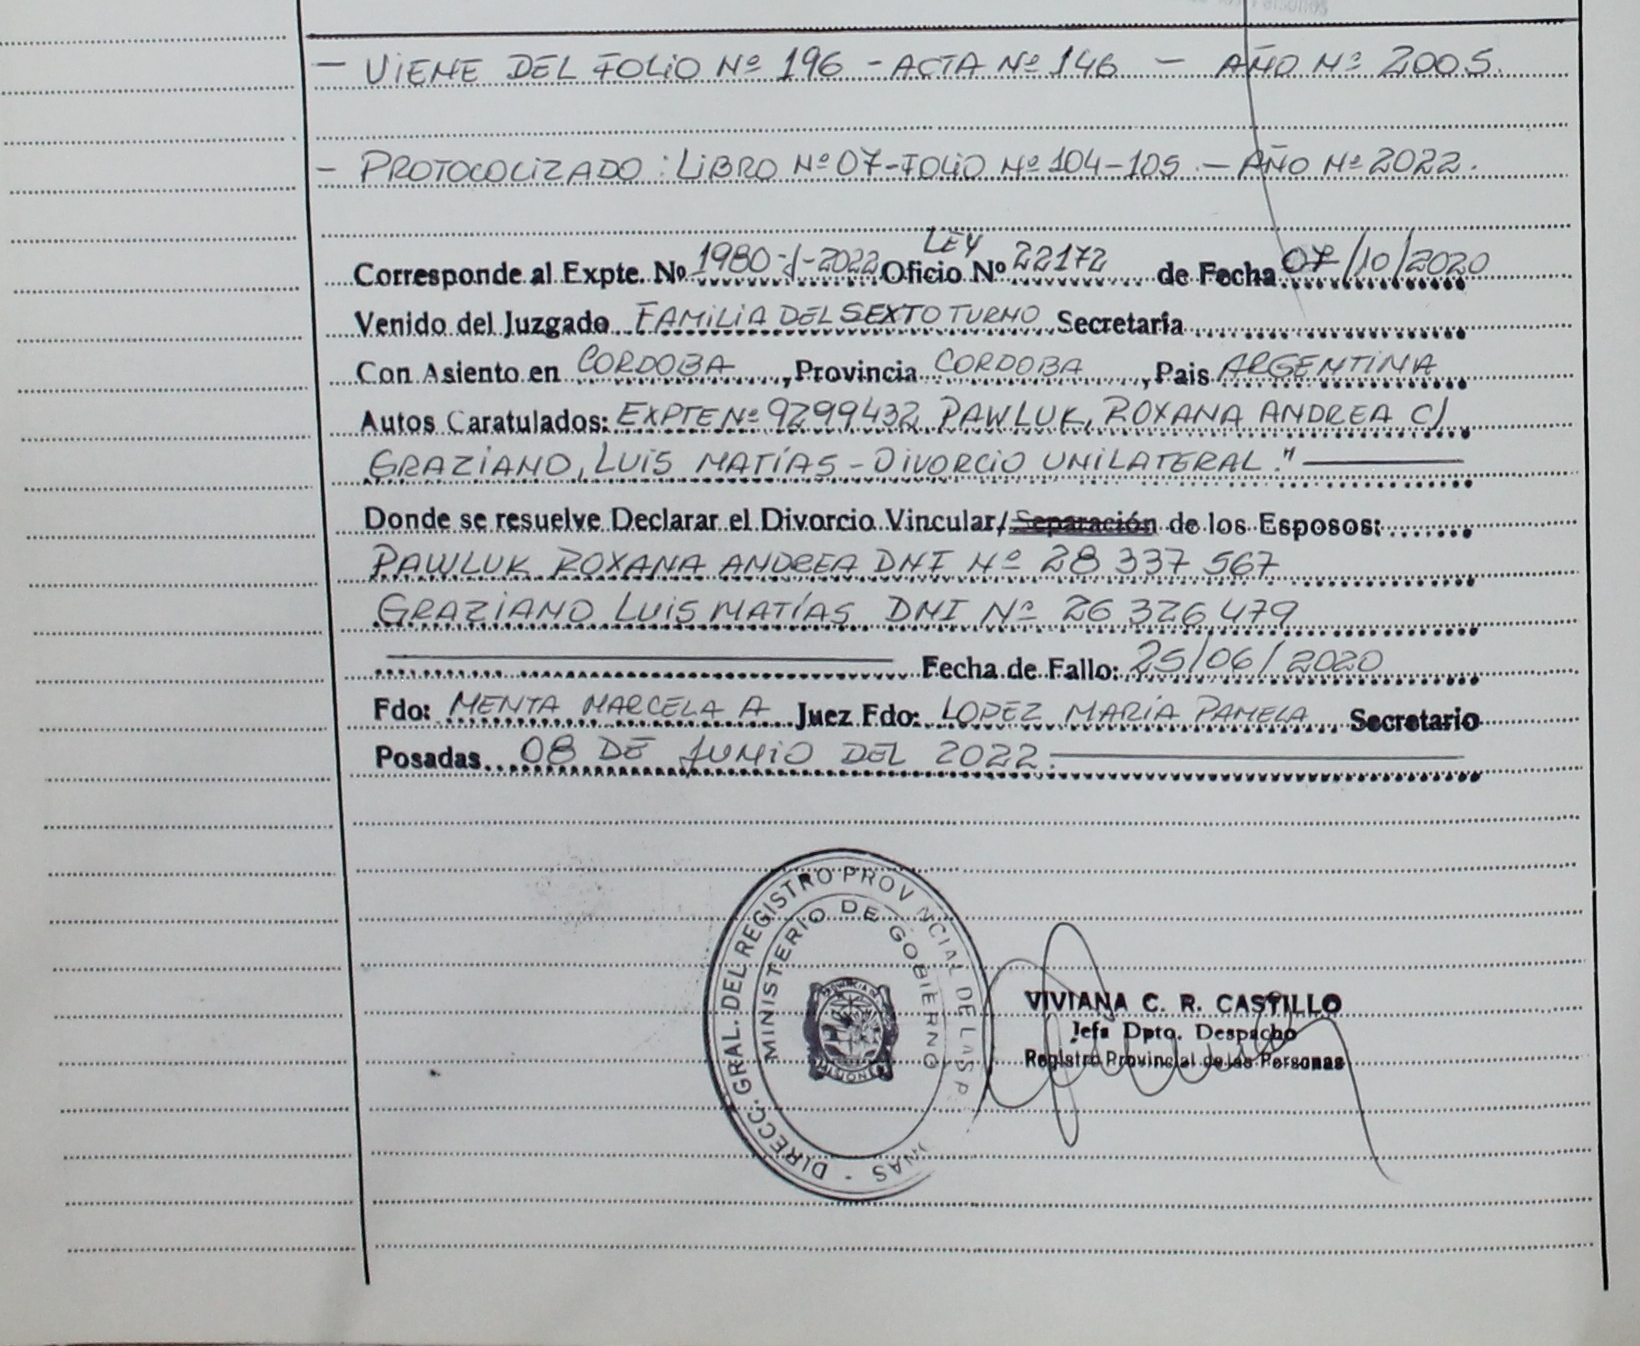 - VIENE DEL FOLIO Nº 196 - ACTA Nº 146 - AÑO Nº 2005.
- PROTOCOLIZADO: LIBRO Nº 07-FOLIO Nº 104-105.- AÑO Nº 2022.
Corresponde al Expte. Nº 1980-J-2022 Oficio Nº LEY 22172 de Fecha 07/10/2020
Venido del Juzgado FAMILIA DEL SEXTO TURNO Secretaría
Con Asiento en CORDOBA, Provincia CORDOBA, Pais ARGENTINA
Autos Caratulados: EXPTE Nº 9299432 PAWLUK, ROXANA ANDREA C/
GRAZIANO, LUIS MATÍAS - DIVORCIO UNILATERAL."
Donde se resuelve Declarar el Divorcio Vincular/Separación de los Esposos:
PAWLUK ROXANA ANDREA DNI Nº 28 337 567
GRAZIANO LUIS MATÍAS DNI Nº 26 326 479
Fecha de Fallo: 25/06/2020
Fdo: MENTA MARCELA A Juez Fdo: LOPEZ MARÍA PAMELA Secretario
Posadas 08 DE JUNIO DEL 2022.
DIRECC. GRAL. DEL REGISTRO PROVINCIAL DE LAS P ONAS -
MINISTERIO DE GOBIERNO
PROVINCIA DE
MISIONES
VIVIANA C. R. CASTILLO
Jefa Dpto. Despacho
Registro Provincial de las Personas